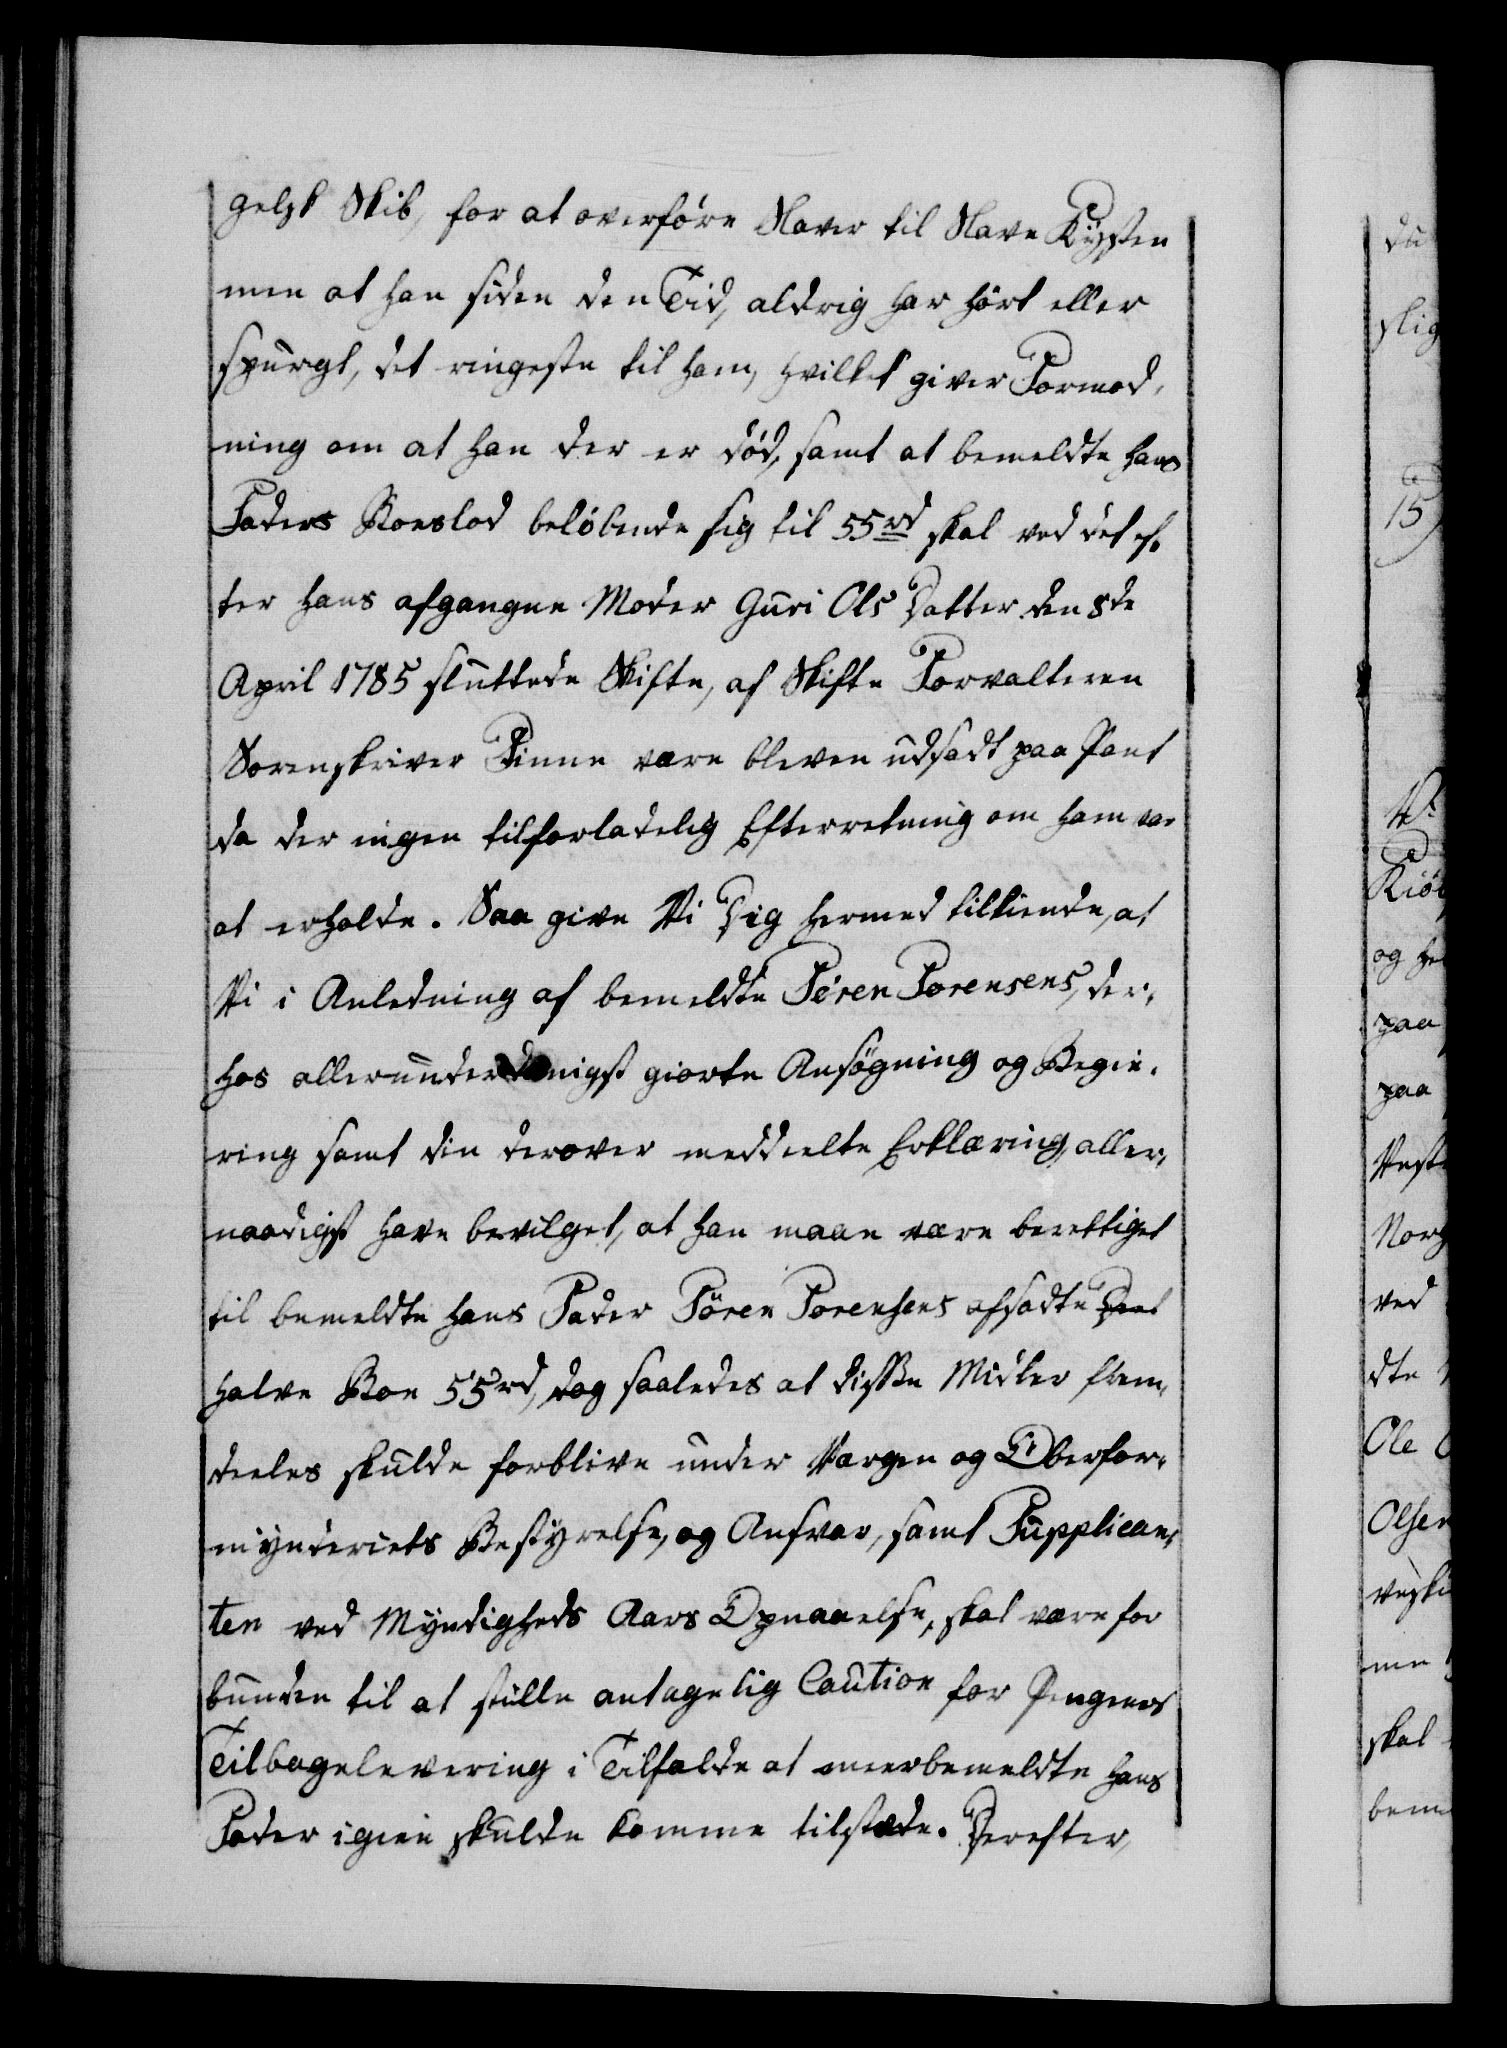 gelsk Skib, for at overføre Slaver til Slave Kysten
men at han siden den Tid, aldrig har hørt eller
spurgt, det ringeste til ham, hvilket giver Formod,
ning om at han der er død, samt at bemeldte hans
Faders Boeslod beløbende sig til 55 rd skal ved det ef,
ter hans afgangne Moder Guri Ols Datter den 8de
April 1785 sluttede Skifte, af Skifte Forvalteren
Sorenskriver Finne være bleven udsadt paa Rente
da der ingen tilforladelig Efterretning om ham var
at erholde. Saa give Vi Dig hermed tilkiende, at
Vi i Anledning af bemeldte Søren Sørensens, der,
hos allerunderdanigst giorte Ansøgning og Begie,
ring samt din derover meddeelte Erklæring, aller,
naadigst have bevilget, at han maae være berettiget
til bemeldte hans Fader Søren Sørensens afsadte
halve Boe 55 rd, dog saaledes at disse Midler frem,
deeles skulde forblive under Værgen og Overfor,
mynderiets Bestyrelse, og Ansvar, samt Supplican,
ten ved Myndigheds Aars Opnaaelse, skal være for
bunden til at stille antagelig Caution for Pengenes
Tilbagelevering i Tilfælde at meerbemeldte hans
Fader igien skulde komme tilstæde. Derefter,